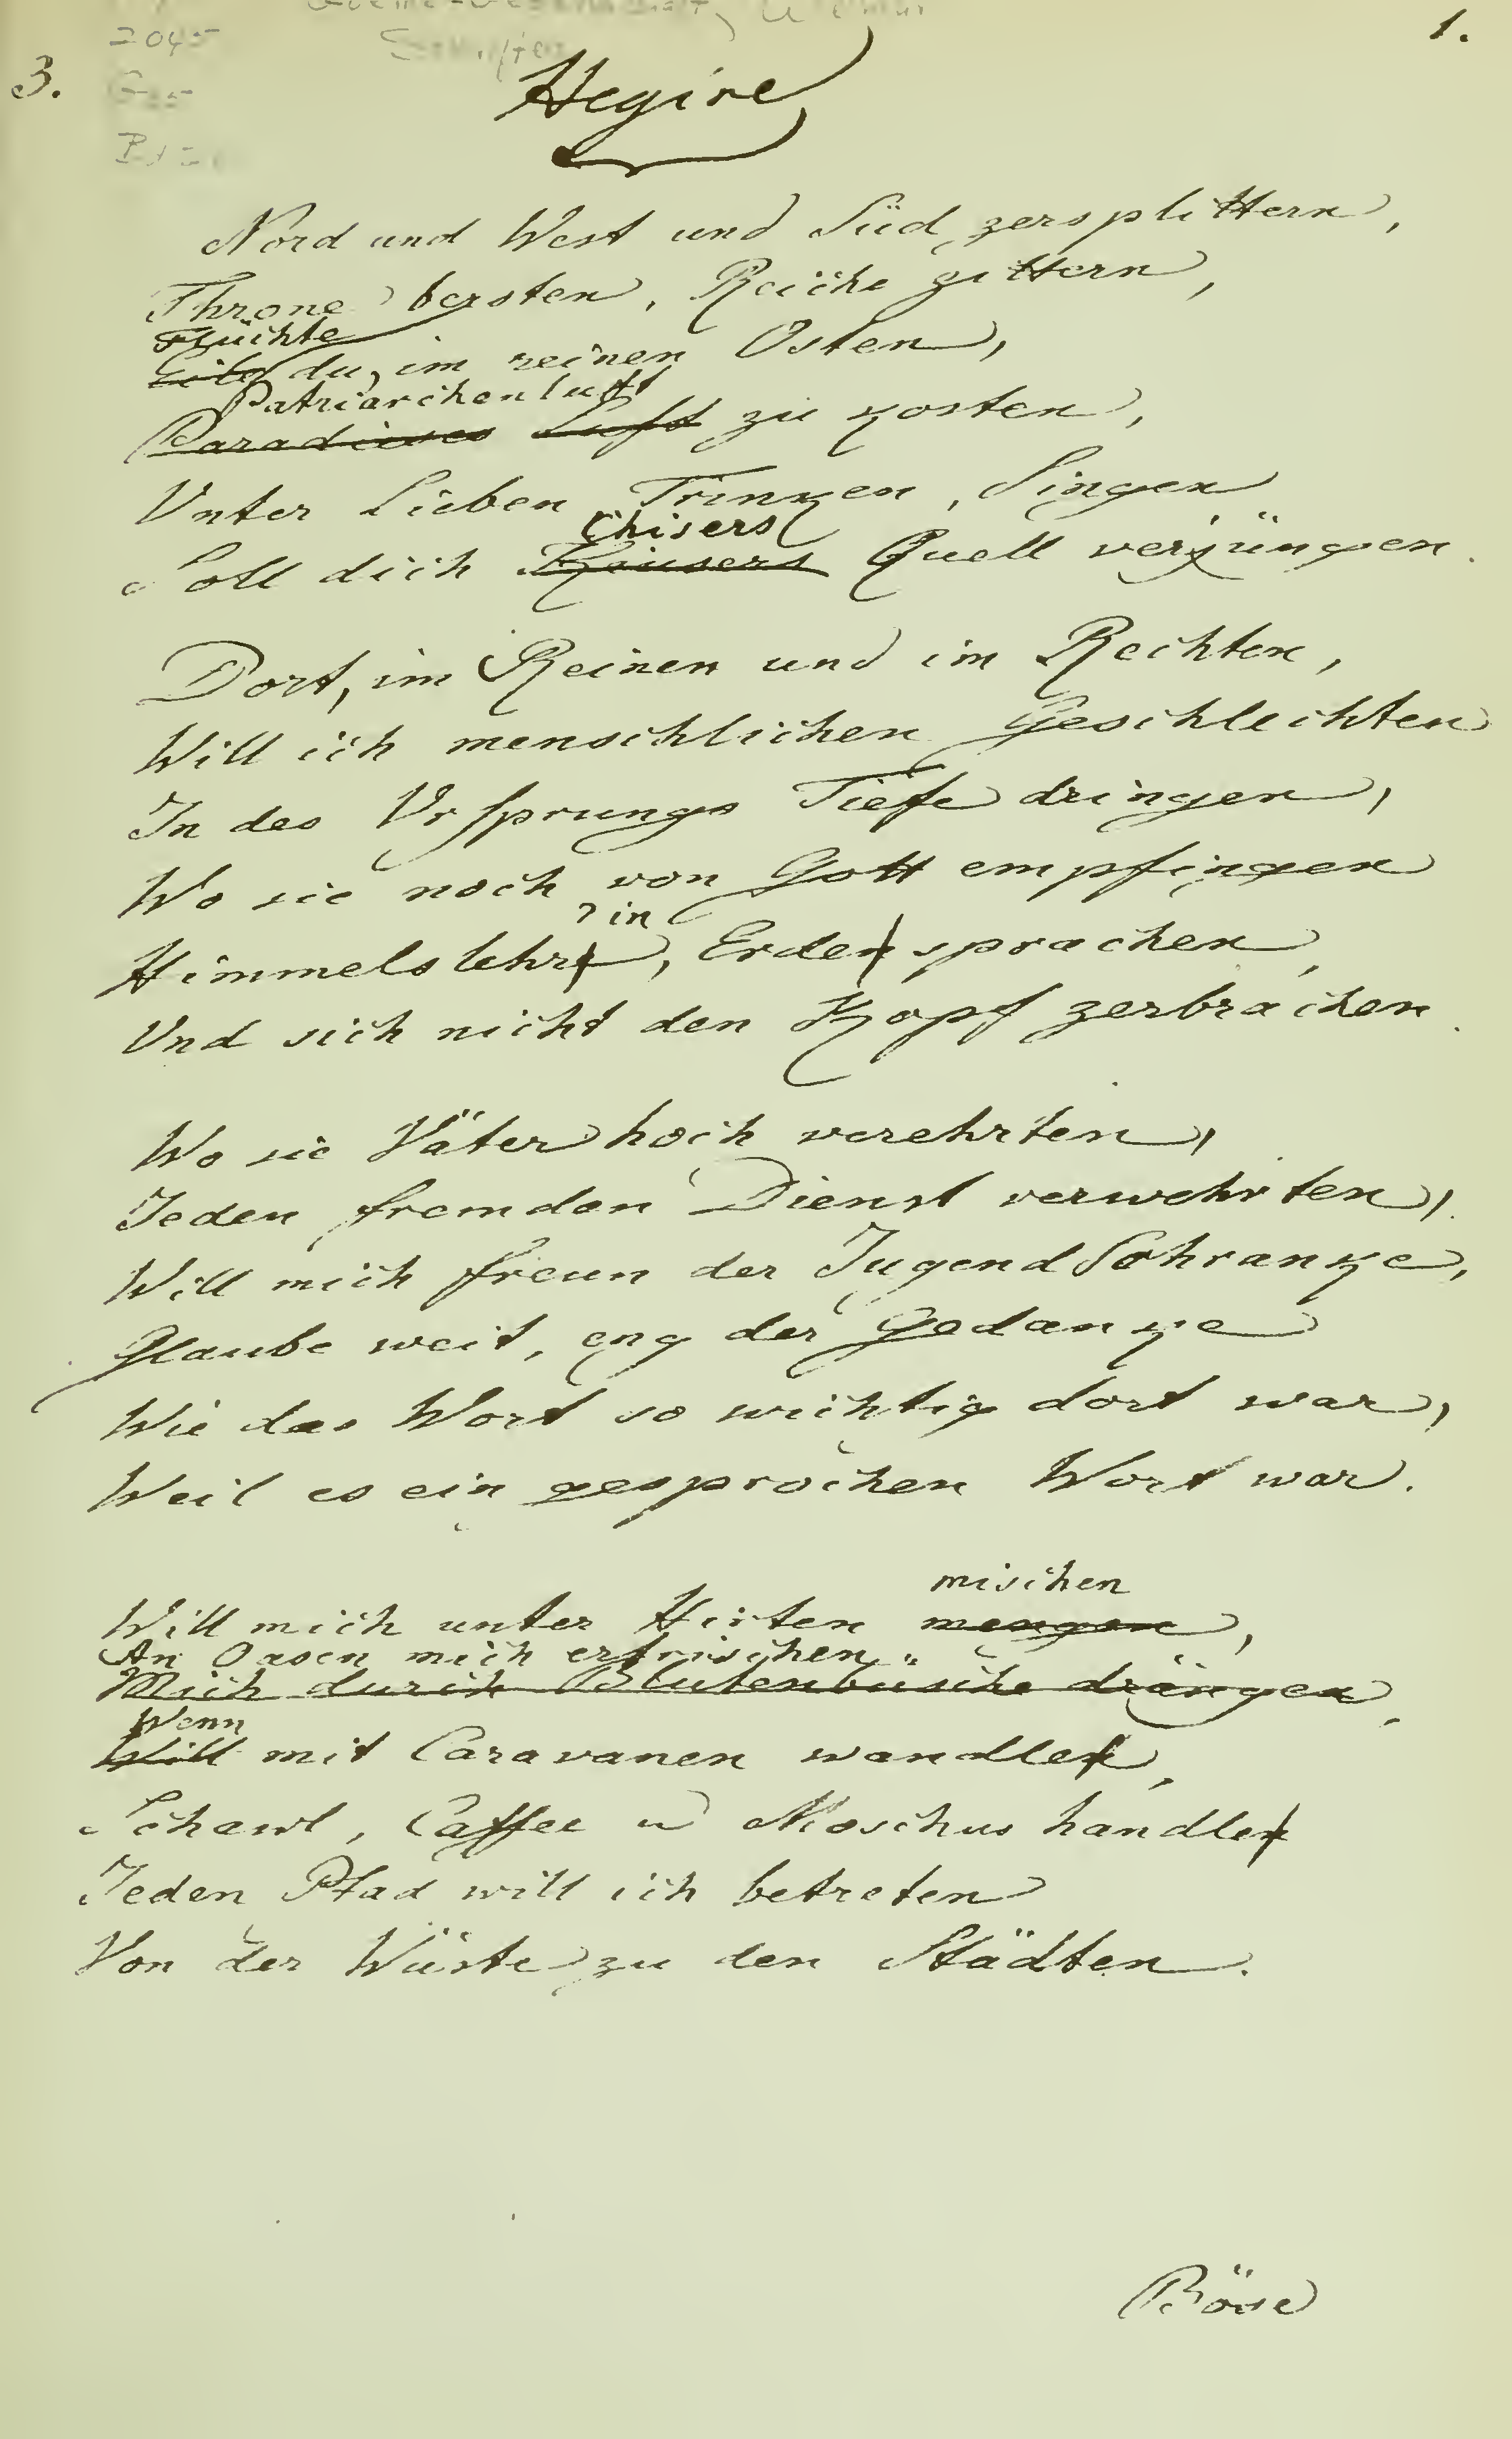 1.
3.
2045
Hegire
Nord und West und Süd zersplittern,
Throne bersten, Reiche zittern,
Flüchte
Eile du, im reinen Osten,
Patriarchenluft
Paradieses Luft zu kosten,
Unter Lieben Trinken, Singen
Chisers
Soll dich Quell verjüngen.
Dort, im Reinen und im Rechten,
Will ich menschlichen Geschlechten
In des Ursprungs Tiefe dringen,
Wo sie noch von Gott empfingen
in
Himmelslehre, Erden sprachen,
Und sich nicht den Kopf zerbrachen.
Wo sie Väter hoch verehrten,
Jeden fremden Dienst verwehrten,
Will mich freun der Jugend Schranke,
Glaube weit, eng der Gedanke
Wie das Wort so wichtig dort war,
Weil es ein gesprochen Wort war.
mischen
Will mich unter Hirten mengen,
An Oasen mich erfrischen
Mich durch Blütenbüsche drängen,
Wenn
Will mit Caravanen wandlen,
Schawl, Caffee u Moschus handlen
Jeden Pfad will ich betreten
Von der Wüste zu den Städten.
Böse